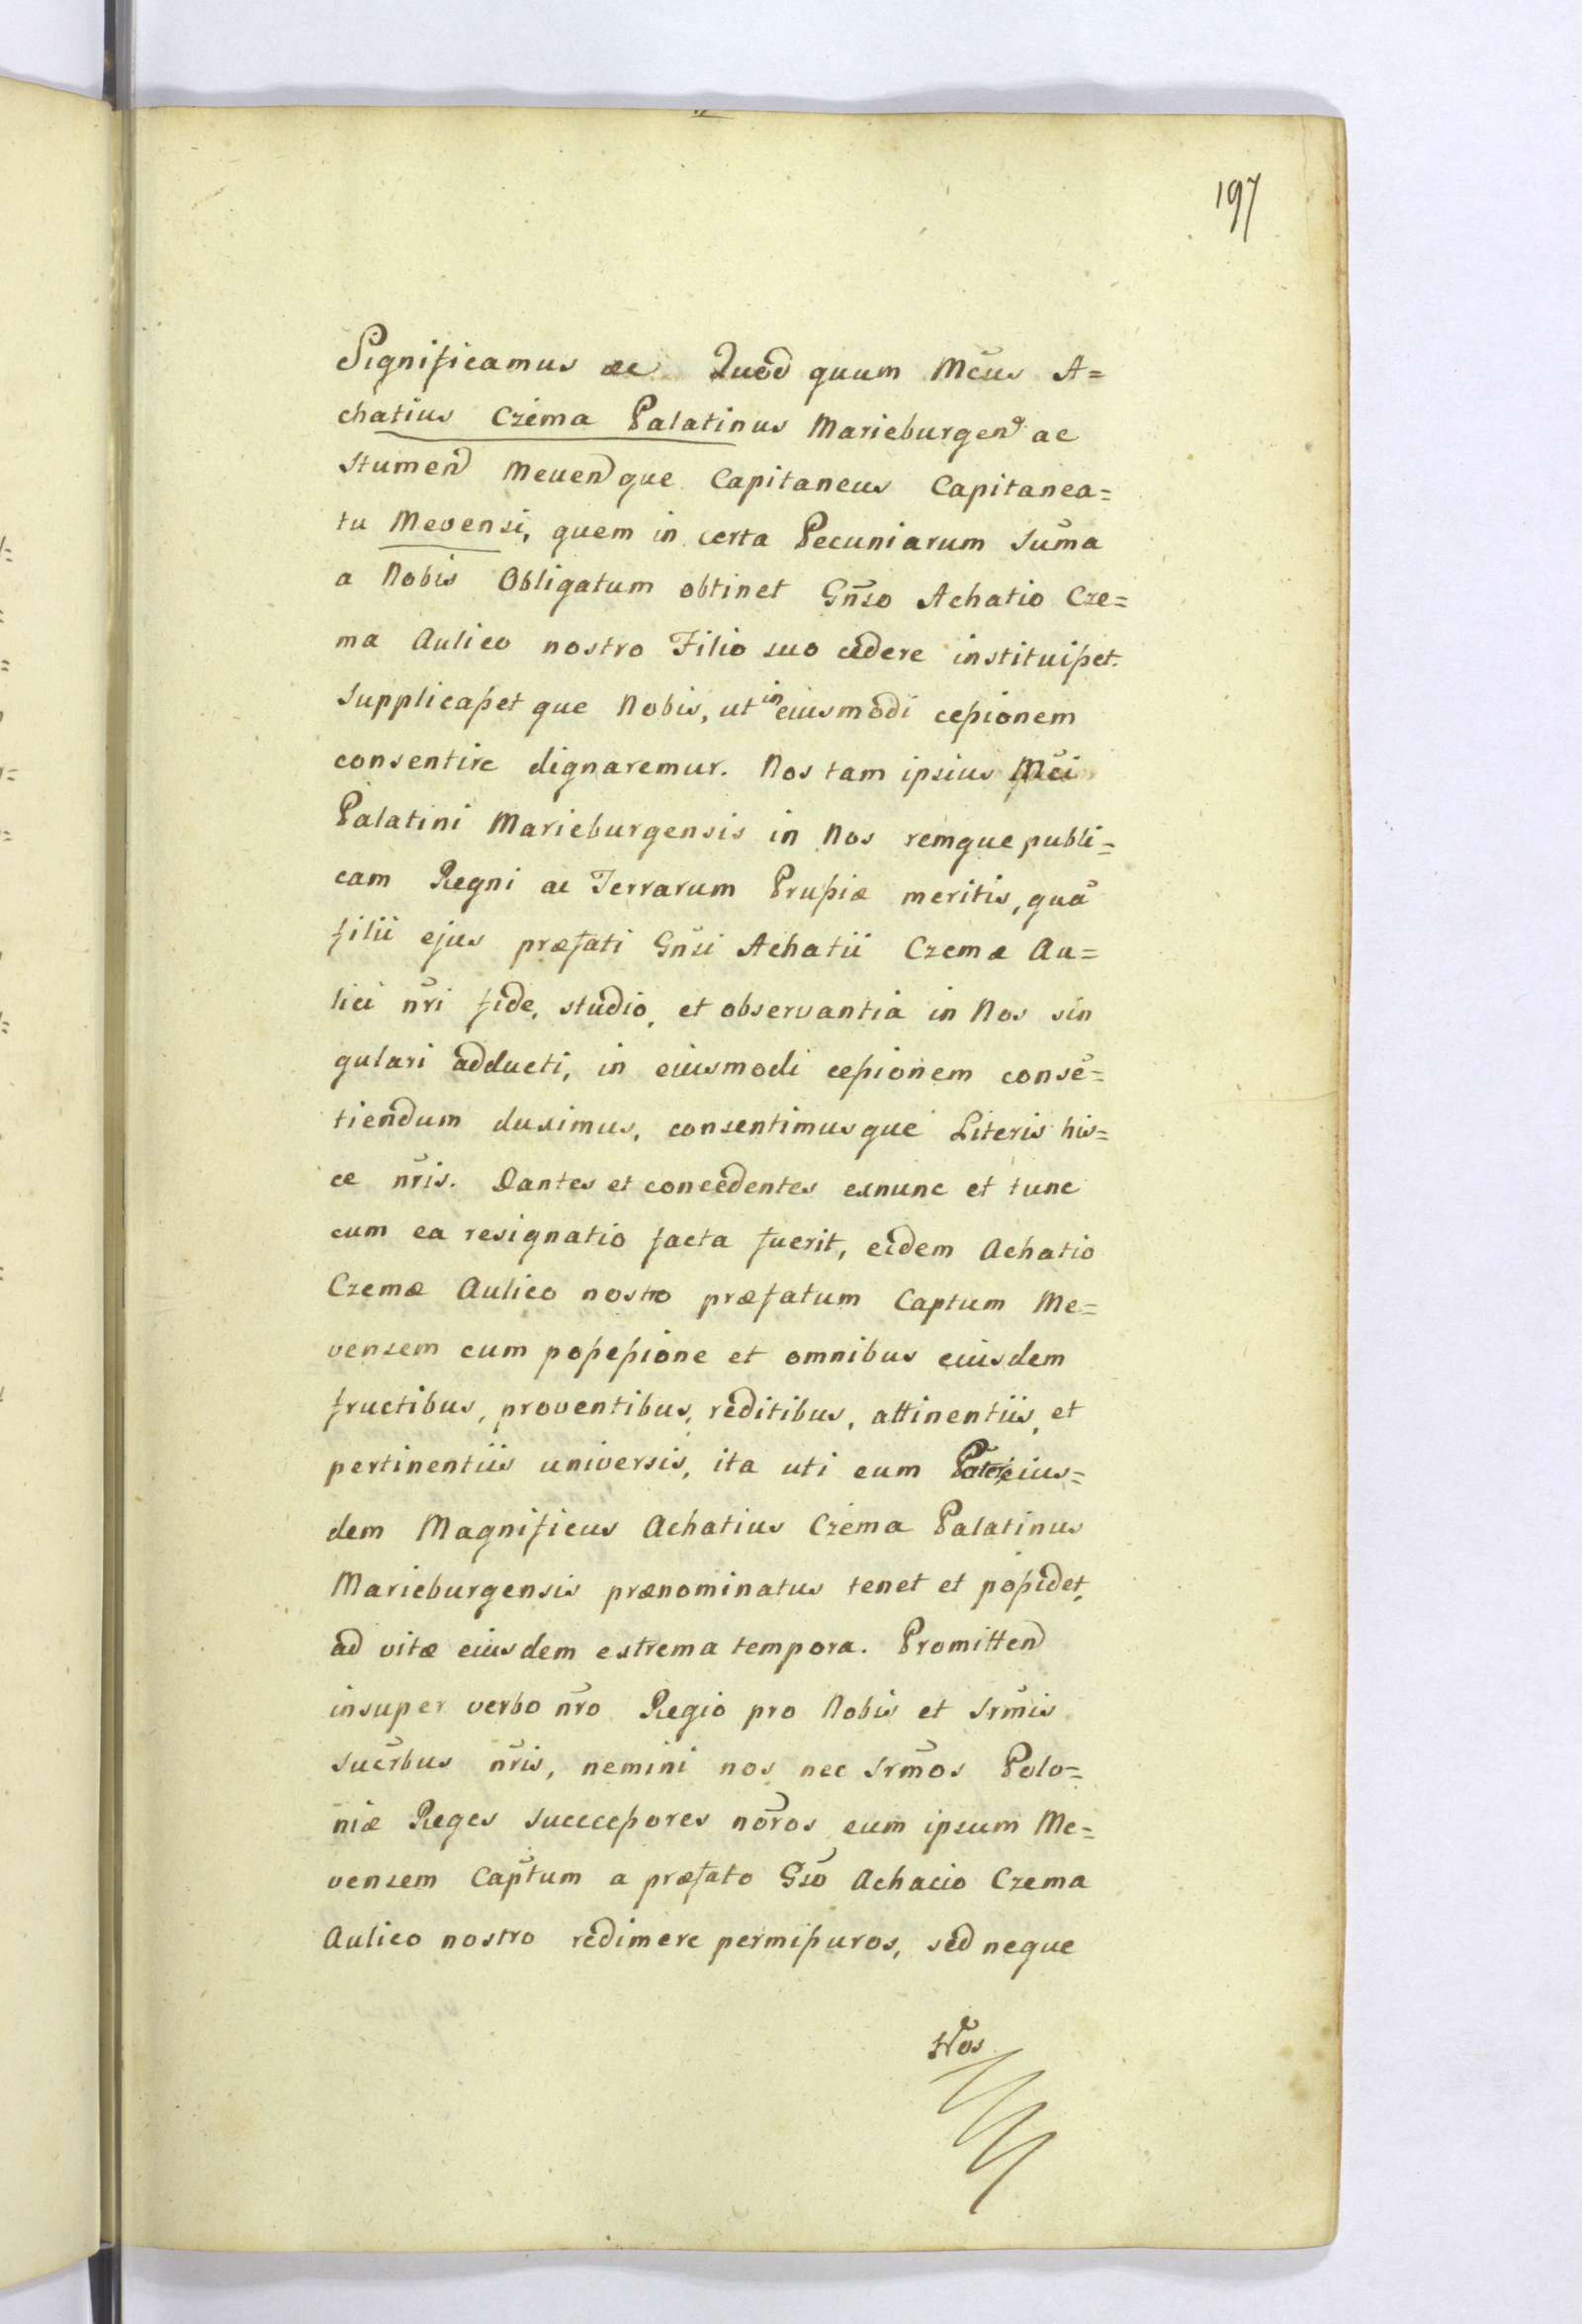 197
Significamus ac Quod quum Mcus A=
chatius Czema Palatinus Marieburgen ac
Stumen Meuen que Capitaneus Capitanea=
tu Mevensi, quem in certa Pecuniarum Suma
a Nobis Obligatum obtinet Gnso Achatio Cze=
ma Aulico nostro Filio suo cedere instituisset.
Supplicasset que Nobis, ut in eiusmodi cessionem
consentire dignaremur. Nos tam ipsius Mci
Palatini Marieburgensis in Nos remque publi=
cam Regni ac Terrarum Prussiæ meritis, qua
filii ejus præfati Gnsi Achatii Czemæ Au=
lici nri fide, studio, et observantia in Nos sin
gulari adducti, in eiusmodi cessionem conse=
tiendum duximus, consentimusque Literis his=
ce nris. Dantes et concedentes exnunc et tunc
cum ea resignatio facta fuerit, eidem Achatio
Czemæ Aulico nostro præfatum Captum Me=
vensem cum possessione et omnibus eiusdem
fructibus, proventibus, reditibus, attinentiis, et
pertinentiis universis, ita uti eum Pater eius=
dem Magnificus Achatius Czema Palatinus
Marieburgensis prænominatus tenet et possidet,
ad vitæ eiusdem extrema tempora. Promitten
insuper verbo nro Regio pro Nobis et Srmis
Sucrbus nris, nemini nos nec Srmos Polo=
niæ Reges Succcessores noros eum ipsum Me=
vensem Captum a præfato Gso Achacio Czema
Aulico nostro redimere permissuros, sed neque
Nos